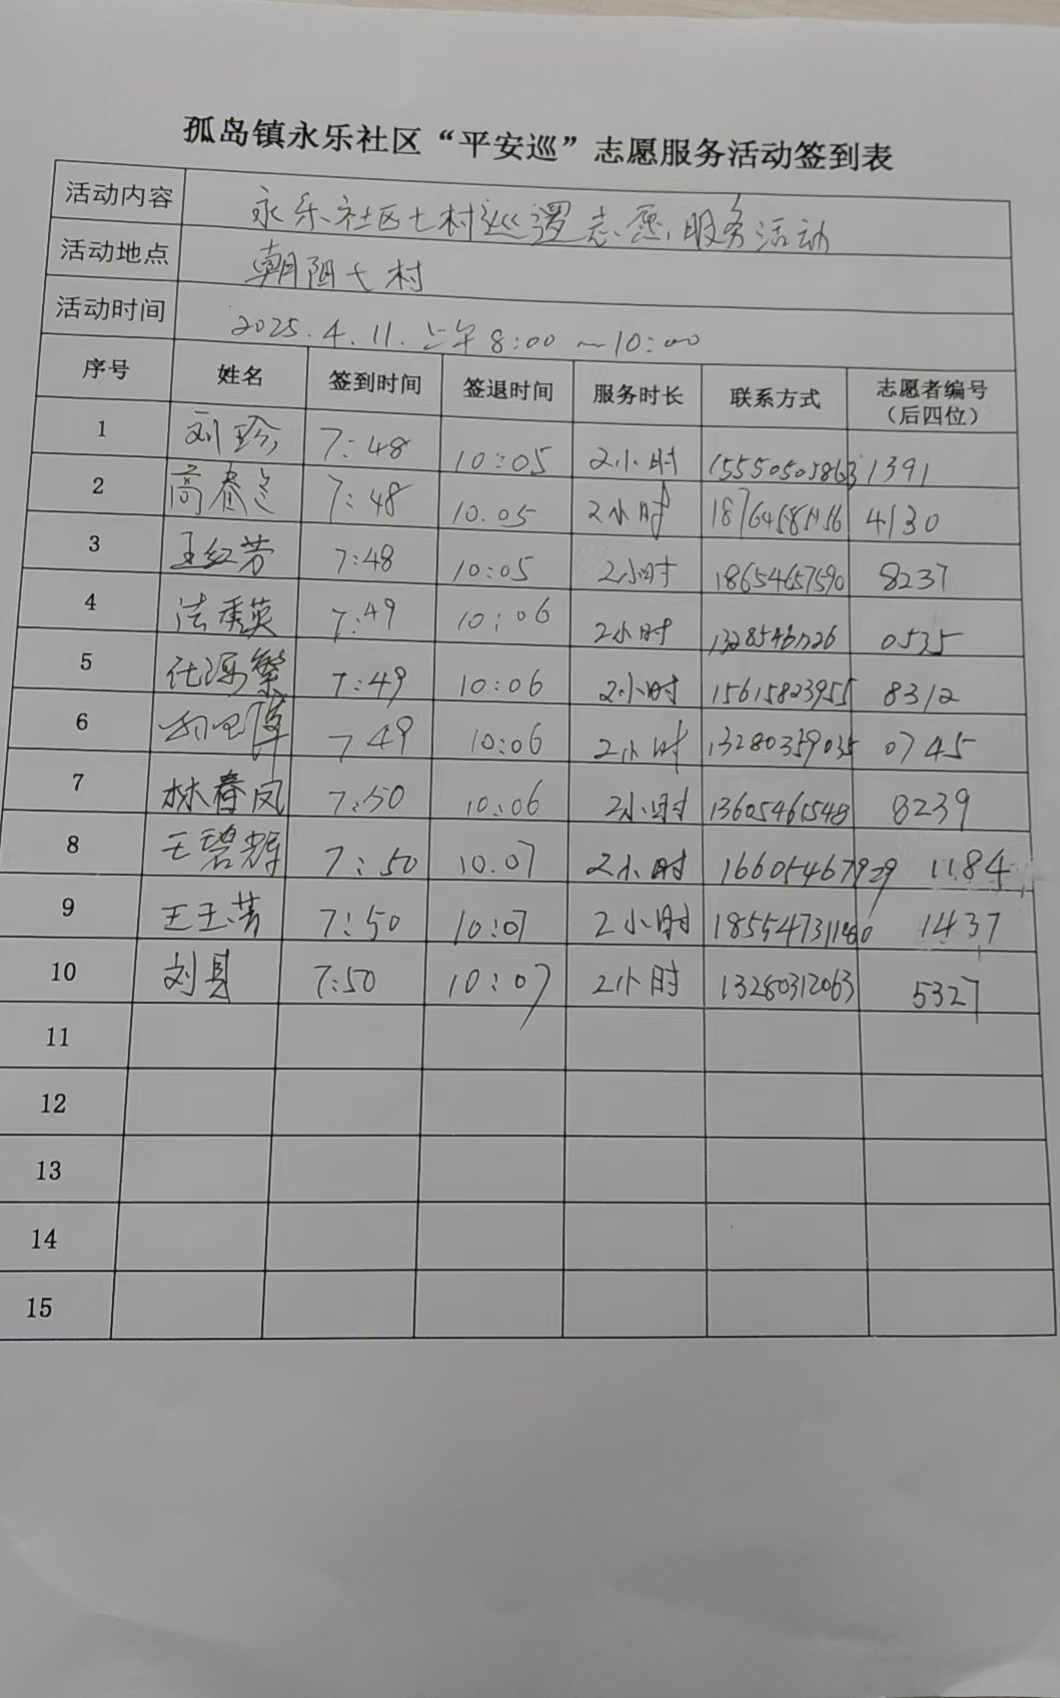 孤岛镇永乐社区“平安巡”志愿服务活动签到表
活动内容 永乐社区七村巡逻志愿服务活动
活动地点 朝阳七村
活动时间 2025.4.11.上午8:00~10:00
序号 姓名 签到时间 签退时间 服务时长 联系方式 志愿者编号（后四位）
1 刘珍 7:48 10:05 2小时 15550505863 1391
2 高 7:48 10.05 2小时 4130
3 王红芳 7:48 10:05 2小时 18654657590 8237
4 法秀英 7:49 10:06 2小时 0535
5 7:49 10:06 2小时 15615823955 8312
6 7 49 10:06 2小时 13280359035 0745
7 林春凤 7:50 10:06 2小时 13605461548 8239
8 王碧辉 7:50 10.07 2小时 16605467929 1184
9 王玉芳 7:50 10:07 2小时 1437
10 刘县 7:50 10:07 2小时 13280312063 5327
11
12
13
14
15